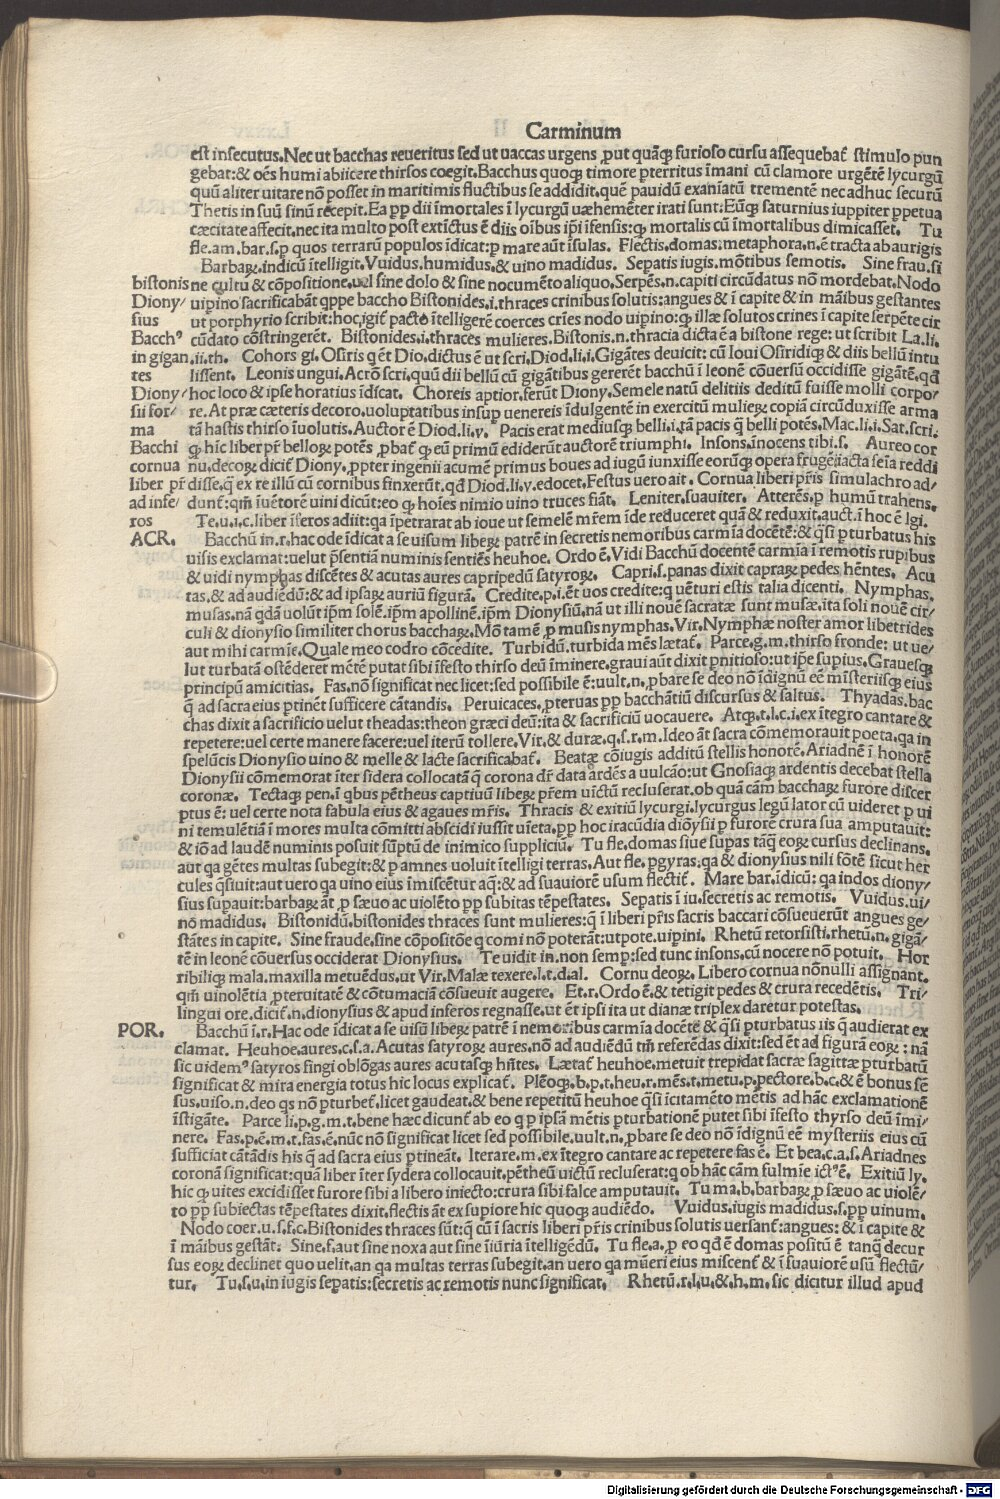 Carminum
est insecutus.Nec ut bacchas reueritus sed ut uaccas urgens ꝓut quãq; furioso cursu assequebat̃ stimulo pun
gebat:& oẽs humi abiicere thirsos coegit.Bacchus quoq; timore pterritus ĩmani cũ clamore urgẽtẽ lycurgũ
quũ aliter uitare nõ posset in maritimis fluctibus se addidit.quẽ pauidũ exaniatũ trementẽ nec adhuc securũ
Thetis in suũ sinũ recepit.Ea pp dii ĩmortales ĩ lycurgũ uæhemẽter irati sunt:Eũq; saturnius iuppiter ppetua
cæcitate affecit.nec ita multo post extĩctus ẽ diis oĩbus ip̃i ĩfensis:q; mortalis cũ ĩmortalibus dimicasset. Tu
fle.am.bar.s.p quos terrarũ populos ĩdicat:p mare aũt ĩsulas. Flectis.domas:metaphora.n.ẽ tracta ab aurigis
Barbaꝝ.indicũ ĩtelligit.Vuidus.humidus.& uino madidus. Sepatis iugis.mõtibus semotis. Sine frau.si
bistonis ne cultu & cõpositione.uel sine dolo & sine nocumẽto aliquo.Serpẽs.n.capiti circũdatus nõ mordebat.Nodo
Diony/ uipino sacrificabãt qppe baccho Bistonides.i.thraces crinibus solutis:angues & ĩ capite & in mãibus gestantes
sius ut porphyrio scribit:hoc.igit̃ pacto ĩtelligerẽ coerces crĩes nodo uipino:q; illæ solutos crines ĩ capite serpẽte cir
Bacch⁹ cũdato cõstringerẽt. Bistonides.i.thraces mulieres.Bistonis.n.thracia dicta ẽ a bistone rege: ut scribit La.li.
in gigan.ii.th. Cohors gi.Osiris q ẽt Dio.dictus ẽ ut scri.Diod.li.i.Gigãtes deuicit: cũ Ioui Osiridiq; & diis bellũ intu
tes lissent. Leonis ungui.Acrõ scri.quũ dii bellũ cũ gigãtibus gererẽt bacchũ ĩ leonẽ cõuersũ occidisse gigãtẽ.qđ
Diony/ hoc loco & ipse horatius ĩdicat. Choreis aptior.ferũt Diony.Semele natũ delitiis deditũ fuisse molli corpo/
sii for/ re.At præ cæteris decoro.uoluptatibus insup uenereis ĩdulgentẽ in exercitũ mulieꝝ copiã circũduxisse arma
ma tã hastis thirso ĩuolutis.Auctor ẽ Diod.li.v. Pacis erat mediusq; belli.i.tã pacis q̃ belli potẽs.Mac.li.i.Sat.scri.
Bacchi q; hic liber pr̃ belloꝝ potẽs ꝓbat̃ q; eũ primũ ediderũt auctorẽ triumphi. Insons.ĩnocens tibi.s. Aureo cor
cornua nu.decoꝝ dicit̃ Diony.ppter ingenii acumẽ primus boues ad iugũ iunxisse eorũq; opera frugẽ iacta seĩa reddi
liber pr̃ disse.q̃ ex re illũ cũ cornibus finxerũt.qđ Diod.li.v.edocet.Festus uero ait. Cornua liberi pr̃is simulachro ad/
ad infe/ dunt̃:qm̃ ĩuẽtorẽ uini dicũt:eo q; hoĩes nimio uino truces fiãt. Leniter.suauiter. Atterẽs.p humũ trahens.
ros Te.u.i.c.liber ĩferos adiit:qa ĩpetrarat ab ioue ut semelẽ mr̃em ĩde reduceret quã & reduxit.auct.ĩ hoc ẽ Igi.
ACR. Bacchũ in.r.hac ode ĩdicat a se uisum libeꝝ patrẽ in secretis nemoribus carmĩa docẽtẽ:& q̃si pturbatus his
uisis exclamat:uelut p̃sentiã numinis sentiẽs heuhoe. Ordo ẽ.Vidi Bacchũ docentẽ carmĩa ĩ remotis rupibus
& uidi nymphas discẽtes & acutas aures capripedũ satyroꝝ. Capri.s.panas dixit capraꝝ pedes hẽntes. Acu
tas.& ad audiẽdũ:& ad ipsaꝝ auriũ figurã. Credite.p.i.ẽt uos credite:q uẽturi estis talia dicenti. Nymphas.
musas.nã qđã uolũt ip̃m solẽ.ip̃m apollinẽ.ip̃m Dionysiũ.nã ut illi nouẽ sacratæ sunt musæ.ita soli nouẽ cir/
culi & dionysio similiter chorus bacchaꝝ.Mõ tamẽ ꝓ musis nymphas.Vir.Nymphæ noster amor libetrides
aut mihi carmĩe.Quale meo codro cõcedite. Turbidũ.turbida mẽs lætat̃. Parce.g.m.thirso fronde: ut ue/
lut turbatã ostẽderet mẽtẽ putat sibi ĩfesto thirso deũ ĩminere.graui aũt dixit pnitioso:ut ip̃e supius.Grauesq;
principũ amicitias. Fas.nõ significat nec licet:sed possibile ẽ:uult.n.ꝓbare se deo nõ ĩdignũ eẽ misteriisq; eius
q̃ ad sacra eius ptinẽt sufficere cãtandis. Peruicaces.ꝓteruas pp bacchãtiũ discursus & saltus. Thyadas.bac
chas dixit a sacrificio uelut theadas:theon græci deũ:ita & sacrificiũ uocauere. Atq;.t.l.c.i.ex ĩtegro cantare &
repetere:uel certe manere facere:uel iterũ tollere.Vir.& duræ.q.s.r.m.Ideo ãt sacra cõmemorauit poeta.qa in
spelũcis Dionysio uino & melle & lacte sacrificabat̃. Beatæ cõiugis additũ stellis honorẽ.Ariadnẽ ĩ honorẽ
Dionysii cõmemorat ĩter sidera collocatã q̃ corona dr̃ data ardẽs a uulcão:ut Gnosiaq; ardentis decebat stella
coronæ. Tectaq; pen.ĩ qbus pẽtheus captiuũ libeꝝ pr̃em uictũ recluserat.ob quã cãm̃ bacchaꝝ furore discer
ptus ẽ: uel certe nota fabula eius & agaues mr̃is. Thracis & exitiũ lycurgi.lycurgus legũ lator cũ uideret p ui
ni temulẽtiã ĩ mores multa cõmitti abscidi iussit uĩeta.pp hoc iracũdia diõysii p furorẽ crura sua amputauit:
& iõ ad laudẽ numinis posuit sũptũ de inimico suppliciũ. Tu fle.domas siue supas tãq̃ eoꝝ cursus declinans.
aut qa gẽtes multas subegit:& p amnes uoluit ĩtelligi terras.Aut fle.pgyras.qa & dionysius nili fõtẽ sicut her
cules q̃siuit:aut uero qa uino eius ĩmiscẽtur aq̃:& ad suauiorẽ usum flectit̃. Mare bar.ĩdicũ: qa indos diony/
sius supauit:barbaꝝ ãt ꝓ sæuo ac uiolẽto pp subitas tẽpestates. Sepatis ĩ iu.secretis ac remotis. Vuidus.ui/
nõ madidus. Bistonidũ.bistonides thraces sunt mulieres:q̃ ĩ liberi pr̃is sacris baccari cõsueuerũt angues ge/
stãtes in capite. Sine fraude.sine cõpositõe q comi nõ poterãt:utpote.uipini. Rhetũ retorsisti.rhetũ.n.gigã/
tẽ in leonẽ cõuersus occiderat Dionysius. Te uidit in.non semp:sed tunc insons.cũ nocere nõ potuit. Hor
ribiliq; mala.maxilla metuẽdus.ut Vir.Malæ texere.l.t.d.al. Cornu deoꝝ.Libero cornua nõnulli assignant.
qm̃ uinolẽtia ꝓteruitatẽ & cõtumaciã cõsueuit augere. Et.r.Ordo ẽ.& tetigit pedes & crura recedẽtis. Tri/
lingui ore.dicit̃.n.dionysius & apud inferos regnasse.ut ẽt ipsi ita ut dianæ triplex daretur potestas.
POR. Bacchũ ĩ.r.Hac ode ĩdicat a se uisũ libeꝝ patrẽ ĩ nemoribus carmĩa docẽtẽ & q̃si pturbatus iis q̃ audierat ex
clamat. Heuhoe.aures.c.s.a.Acutas satyroꝝ aures.nõ ad audiẽdũ tm̃ referẽdas dixit:sed ẽt ad figurã eoꝝ : nã
sic uidem⁹ satyros fingi oblõgas aures acutasq; hñtes. Lætat̃ heuhoe.metuit trepidat sacræ sagittæ pturbatũ
significat & mira energia totus hic locus explicat̃. Plẽoq;.b.p.t.heu.r.mẽs.t.metu.p.pectore.b.c.& ẽ bonus sẽ
sus.uiso.n.deo qs nõ pturbet̃.licet gaudeat.& bene repetitũ heuhoe q̃si ĩcitamẽto mẽtis ad hãc exclamationẽ
ĩstigãte. Parce li.p.g.m.t.bene hæc dicunt̃ ab eo q p ipsã mẽtis pturbationẽ putet sibi ĩfesto thyrso deũ ĩmi/
nere. Fas.p.ẽ.m.t.fas.ẽ.nũc nõ significat licet sed possibile.uult.n.ꝓbare se deo nõ ĩdignũ eẽ mysteriis eius cũ
sufficiat cãtãdis his q̃ ad sacra eius ptineãt. Iterare.m.ex ĩtegro cantare ac repetere fas ẽ. Et bea.c.a.s.Ariadnes
coronã significat:quã liber ĩter sydera collocauit.pẽtheũ uictũ recluserat:q ob hãc cãm fulmĩe ict⁹ẽ. Exitiũ ly.
hic q; uites excidisset furore sibi a libero iniecto:crura sibi falce amputauit. Tu ma.b.barbaꝝ ꝓ sæuo ac uiolẽ/
to pp subiectas tẽpestates dixit.flectis ãt ex supiore hic quoq; audiẽdo. Vuidus.iugis madidus.s.pp uinum.
Nodo coer.u.s.f.c.Bistonides thraces sũt:q̃ cũ ĩ sacris liberi pr̃is crinibus solutis uersant̃:angues: & ĩ capite &
ĩ mãibus gestãt: Sine.f.aut sine noxa aut sine ĩiũria ĩtelligẽdũ. Tu fle.a.ꝓ eo qđ ẽ domas positũ ẽ tanq̃ decur
sus eoꝝ declinet quo uelit.an qa multas terras subegit.an uero qa mũeri eius miscent̃ & ĩ suauiorẽ usũ flectũ/
tur. Tu.s.u.in iugis sepatis:secretis ac remotis nunc significat. Rhetũ.r.l.u.&.h.m.sic dicitur illud apud
Digitalisierung gefördert durch die Deutsche Forschungsgemeinschaft - DFG